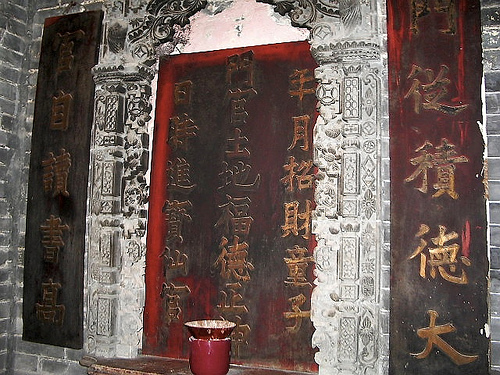 門從積德大
年月招財童子
門官土地福德正神
日時進寶仙官
官自讀書高